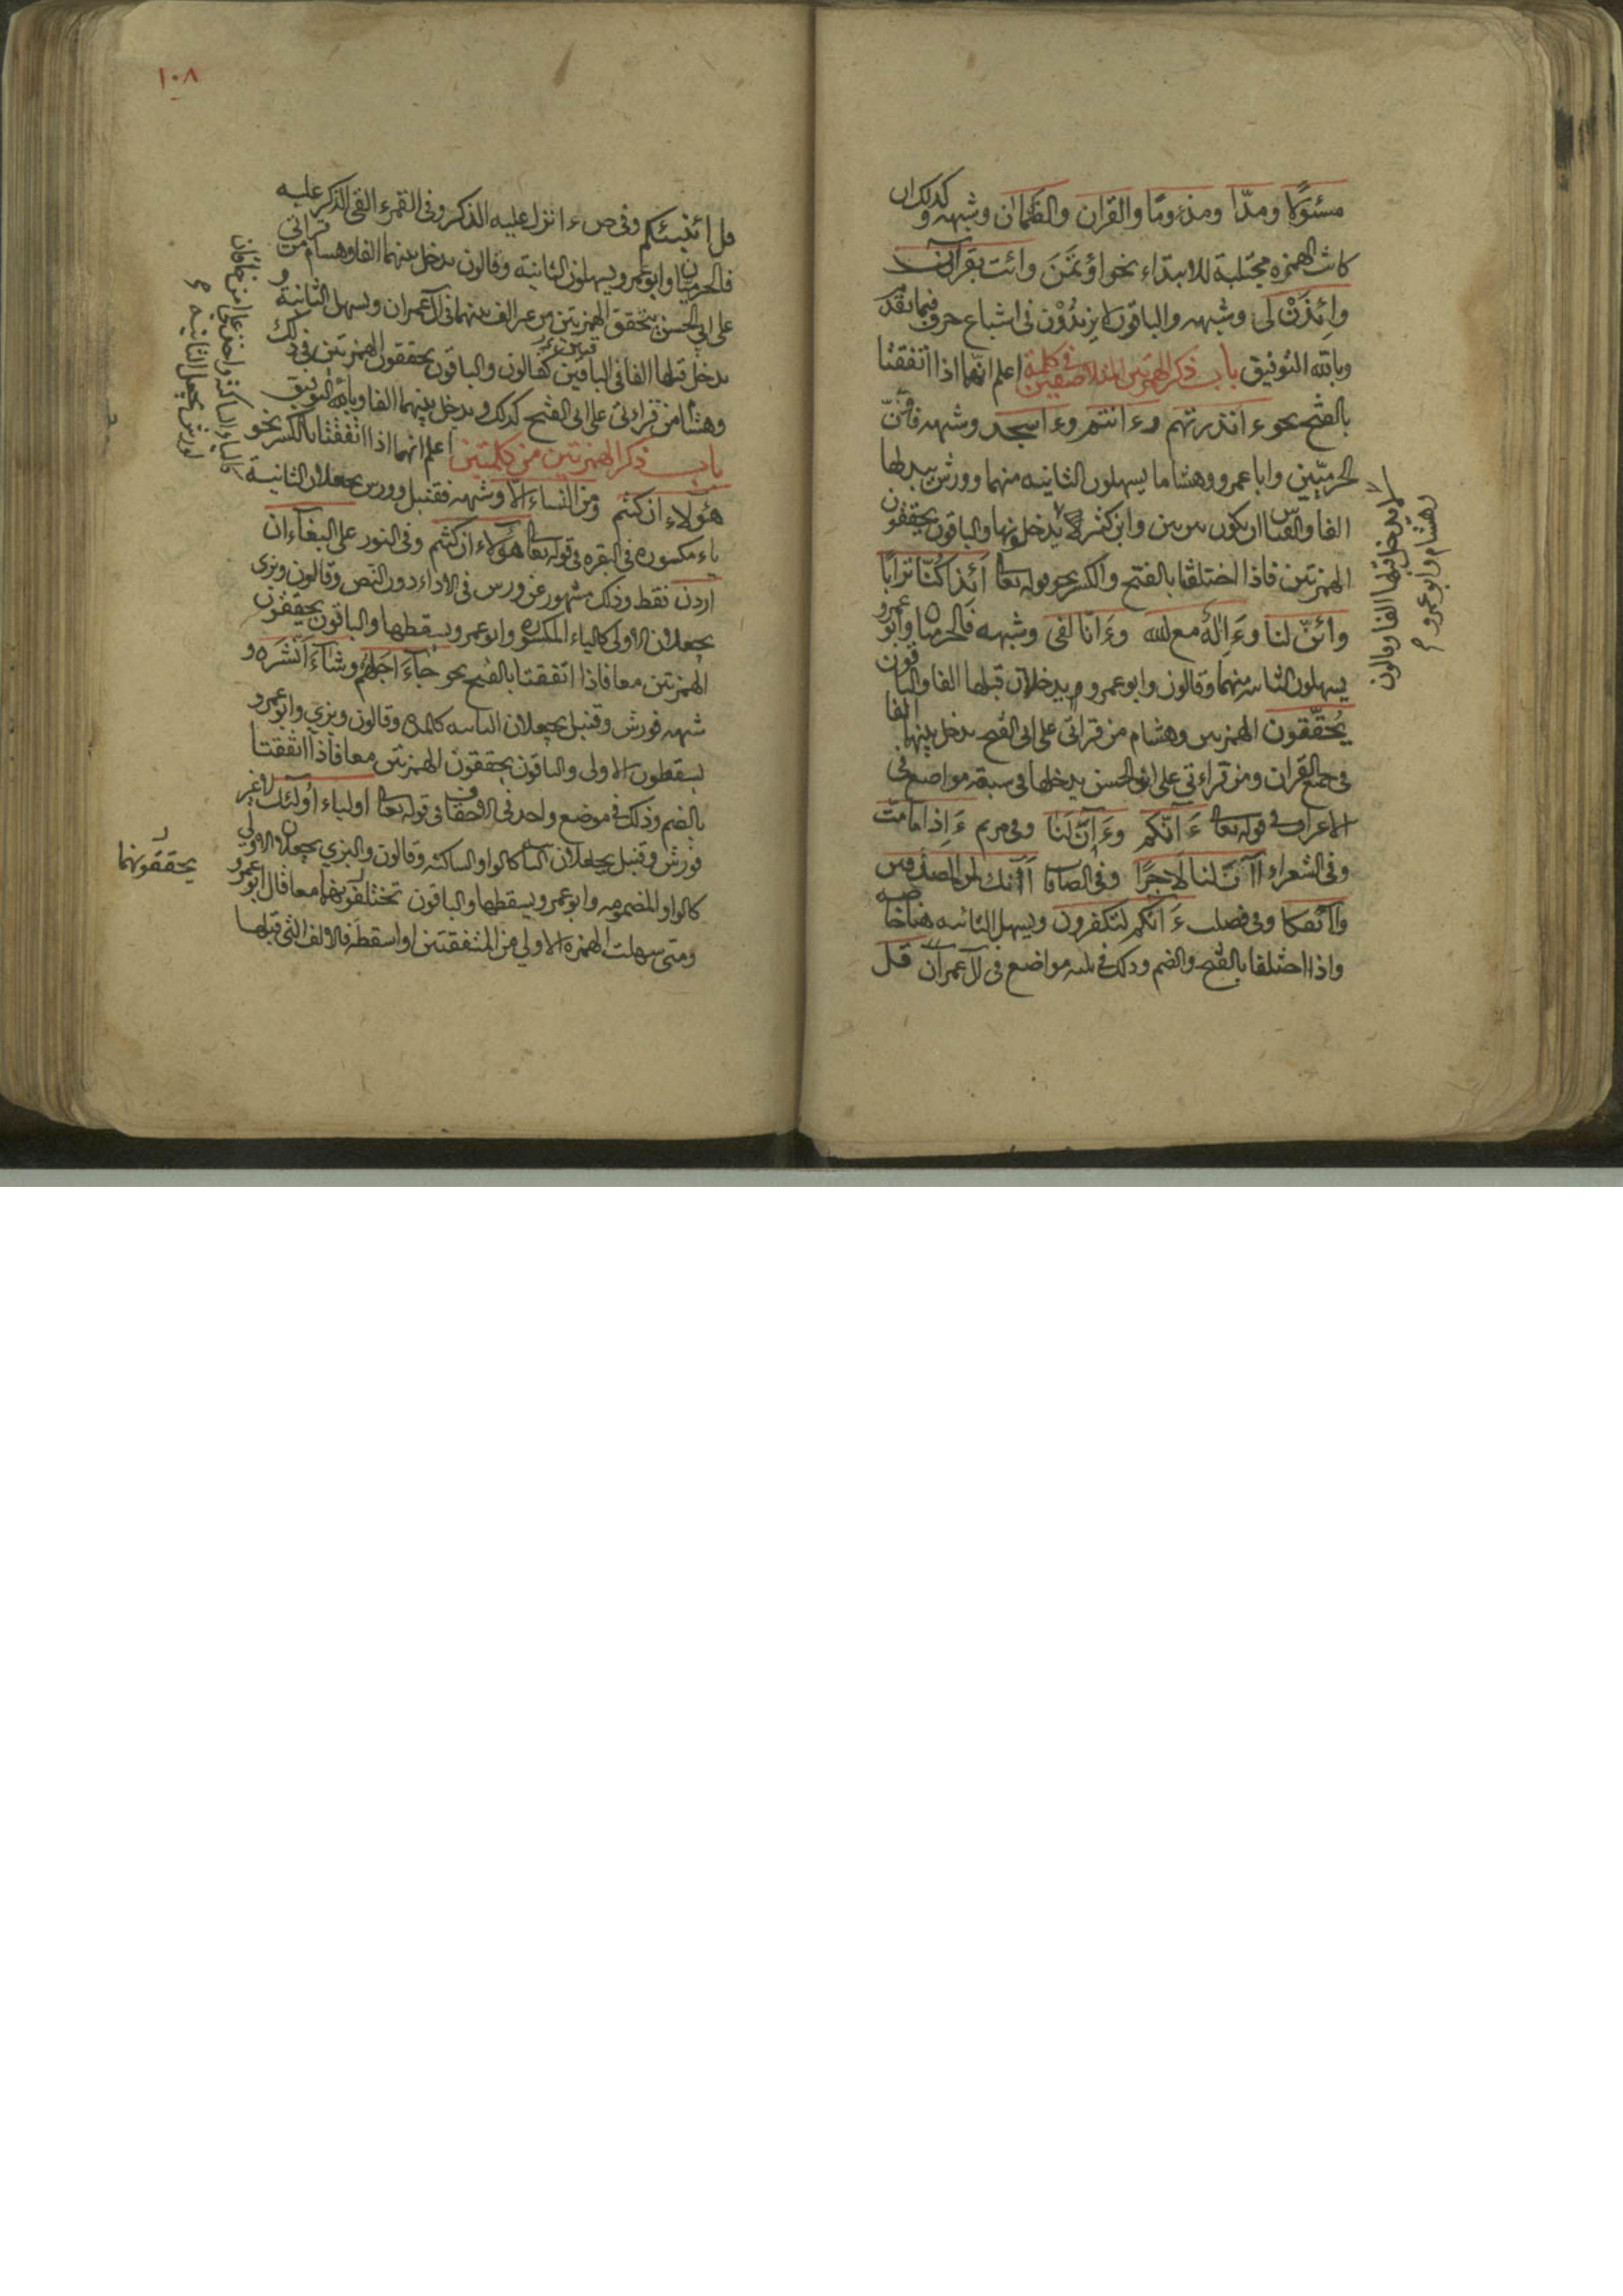 مسئولا ومدّا ومذءومًا والقران والظمان وشبهه وكذلك ان
كانت الهمزة مجتلبة للابتداء نحو اؤتمن وائت بقرآن
وائذن لى وشبهه والباقون لا يزيدون فى اشباع حرف فيما تقدم
وبالله التوفيق باب ذكر الهمزتين المتلاصقتين فى كلمة اعلم انهما اذا اتفقتا
بالفتح نحو ءانذرتهم وءانتم وءاسجد وشبهه فان
الحرميّين وابا عمرو وهشاما يسهلون الثانيه منهما وورش يبدلها
الفا والقياس ان يكون بين بين وابن كثير لا يدخل قبلها والباقون يحققون
الهمزتين فاذا اختلفتا بالفتح والكسر نحو قوله تعالى ائذا كنّا ترابا
وائنّ لنا وءاله مع الله وءانا لفى وشبهه فالحرميان وابو عمرو
يسهلون الثانيه منهما وقالون وابو عمرو يدخلان قبلها الفا والباقون
يحققون الهمزتين وهشام من قراتى على ابى الفتح يدخل بينهما الفا
فى جميع القران ومن قراءتى على ابى الحسن يدخلها فى سبعة مواضع فى
الاعراف فى قوله تعالى ءانكم وءانّ لنا وفى مريم ءاذا ما متّ
وفى الشعراء اانّ لنا لاجرًا وفى الصافات اانك لمن المصدقين
واانفكا وفى فصلت ءانكم لتكفرون ويسهل الثانيه هنا خاصه
واذا اختلفتا بالفتح والضم وذلك فى ثلثه مواضع فى ال عمران قل
لا يدخل قبلها الفا وقالون
وهشام وابو عمرو م
١٠٨
قل اؤنبئكم وفى ص ءانزل عليه الذكر وفى القمر ءالقى الذكر عليه
فالحرميان وابو عمرو يسهلون الثانية وقالون يدخل بينهما الفا وهشام من قراتى
على ابى الحسن يحقق الهمزتين من غير الف بينهما فى ال عمران ويسهل الثانية و
يدخل قبلها الفا فى الباقين كقالون والباقون يحققون الهمزتين فى ذلك
وهشام من قراءتى على ابى الفتح كذلك ويدخل بينهما الفا وبالله التوفيق
باب ذكر الهمزتين من كلمتين اعلم انهما اذا اتفقتا بالكسر نحو
هؤلاء ان كنتم ومن النساء الّا وشبهه فقنبل وورش يجعلان الثانية
ياء مكسورة فى البقره فى قوله تعالى هؤلاء ان كنتم وفى النور على البغاء ان
اردن فقط وذلك مشهور عن ورش فى الاداء دون النص وقالون وبزى
يجعلان الاولى كالياء المكسوره وابو عمرو يسقطها والباقون يحققون
الهمزتين معا فاذا اتفقتا بالفتح نحو جاء اجلهم وشاء انشره و
شبهه فورش وقنبل يجعلان الثانيه كالمدة وقالون وبزى وابو عمرو
يسقطون الاولى والباقون يحققون الهمزتين معا فاذا اتفقتا
بالضم وذلك فى موضع واحد فى الاحقاف فى قوله تعالى اولياء اولئك لا غير
فورش وقنبل يجعلان الثانيه كالواو الساكنه وقالون والبزى يجعلان الاولى
كالواو المضمومه وابو عمرو يسقطها والباقون معا قال ابو عمرو
ومتى سهلت الهمزه الاولى من المتفقتين او اسقطت فالالف التى قبلها
كالياء الساكنة واخذ على ابن خاقان
لورش بجعل الثانيه م
يحققونهما